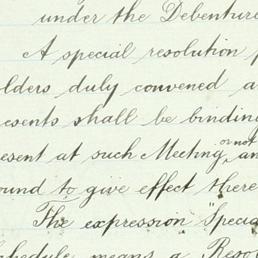 under the Debenture
A special resolution
olders duly convened a
esents shall be binding
esent at such Meeting, or not an
ound to give effect there
The expression "Specia
chedule means a Reso